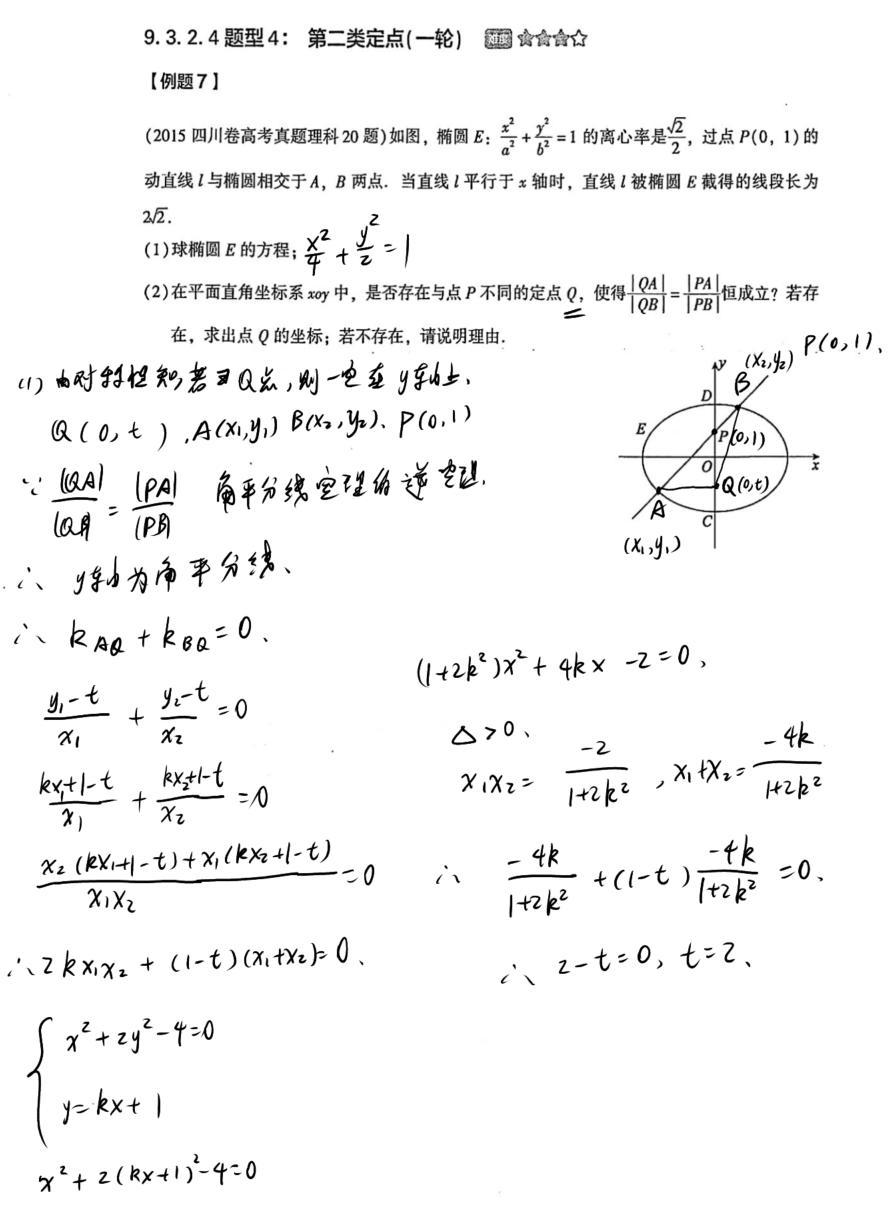 9.3.2.4 题型4： 第二类定点(一轮) 难度 ★★★☆
【例题7】
(2015 四川卷高考真题理科 20 题)如图，椭圆 E：x²/a²+y²/b²=1 的离心率是√2/2，过点 P(0，1)的
动直线 l 与椭圆相交于 A，B 两点．当直线 l 平行于 x 轴时，直线 l 被椭圆 E 截得的线段长为
2√2．
(1)球椭圆 E 的方程；x²/4 + y²/2 = 1
(2)在平面直角坐标系 xoy 中，是否存在与点 P 不同的定点 Q，使得|QA|/|QB|=|PA|/|PB|恒成立？若存
在，求出点 Q 的坐标；若不存在，请说明理由．
P(0,1).
(1) 由对称性知,若Q点,则一定在 y轴上.
Q(0,t),A(x₁,y₁) B(x₂,y₂). P(0,1)
∵ |QA|/|QB| = |PA|/|PB| 角平分线定理的逆定理.
∴ y轴为角平分线.
∴ k_AQ + k_BQ = 0.
(y₁-t)/x₁ + (y₂-t)/x₂ = 0
(kx₁+1-t)/x₁ + (kx₂+1-t)/x₂ = 0
(x₂(kx₁+1-t)+x₁(kx₂+1-t))/(x₁x₂) = 0
∴ 2kx₁x₂ + (1-t)(x₁+x₂)=0.
x²+2y²-4=0
y=kx+1
x²+2(kx+1)²-4=0
y
(x₂,y₂)
D
B
E
P(0,1)
O
x
Q(0,t)
A
C
(x₁,y₁)
(1+2k²)x²+4kx-2=0,
Δ>0.
x₁x₂= -2/(1+2k²), x₁+x₂= -4k/(1+2k²)
∴ -4k/(1+2k²) +(1-t) -4k/(1+2k²) =0.
∴ 2-t=0, t=2.